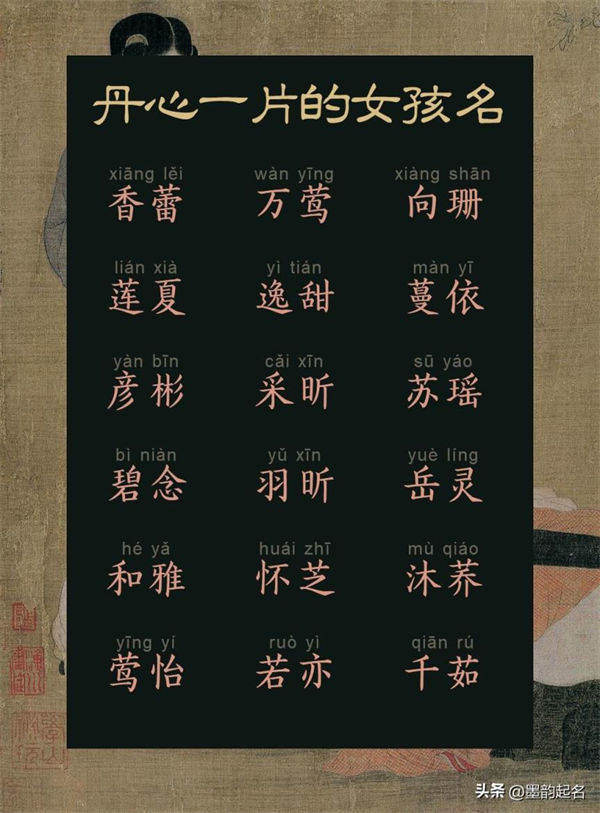 丹心一片的女孩名
xiāng lěi wàn yīng xiàng shān
香蕾 万莺 向珊
lián xià yì tián màn yī
莲夏 逸甜 蔓依
yàn bīn cǎi xīn sū yáo
彦彬 采昕 苏瑶
bì niàn yǔ xīn yuè líng
碧念 羽昕 岳灵
hé yǎ huái zhī mù qiáo
和雅 怀芝 沐荞
yīng yí ruò yì qiān rú
莺怡 若亦 千茹
头条 @墨韵起名